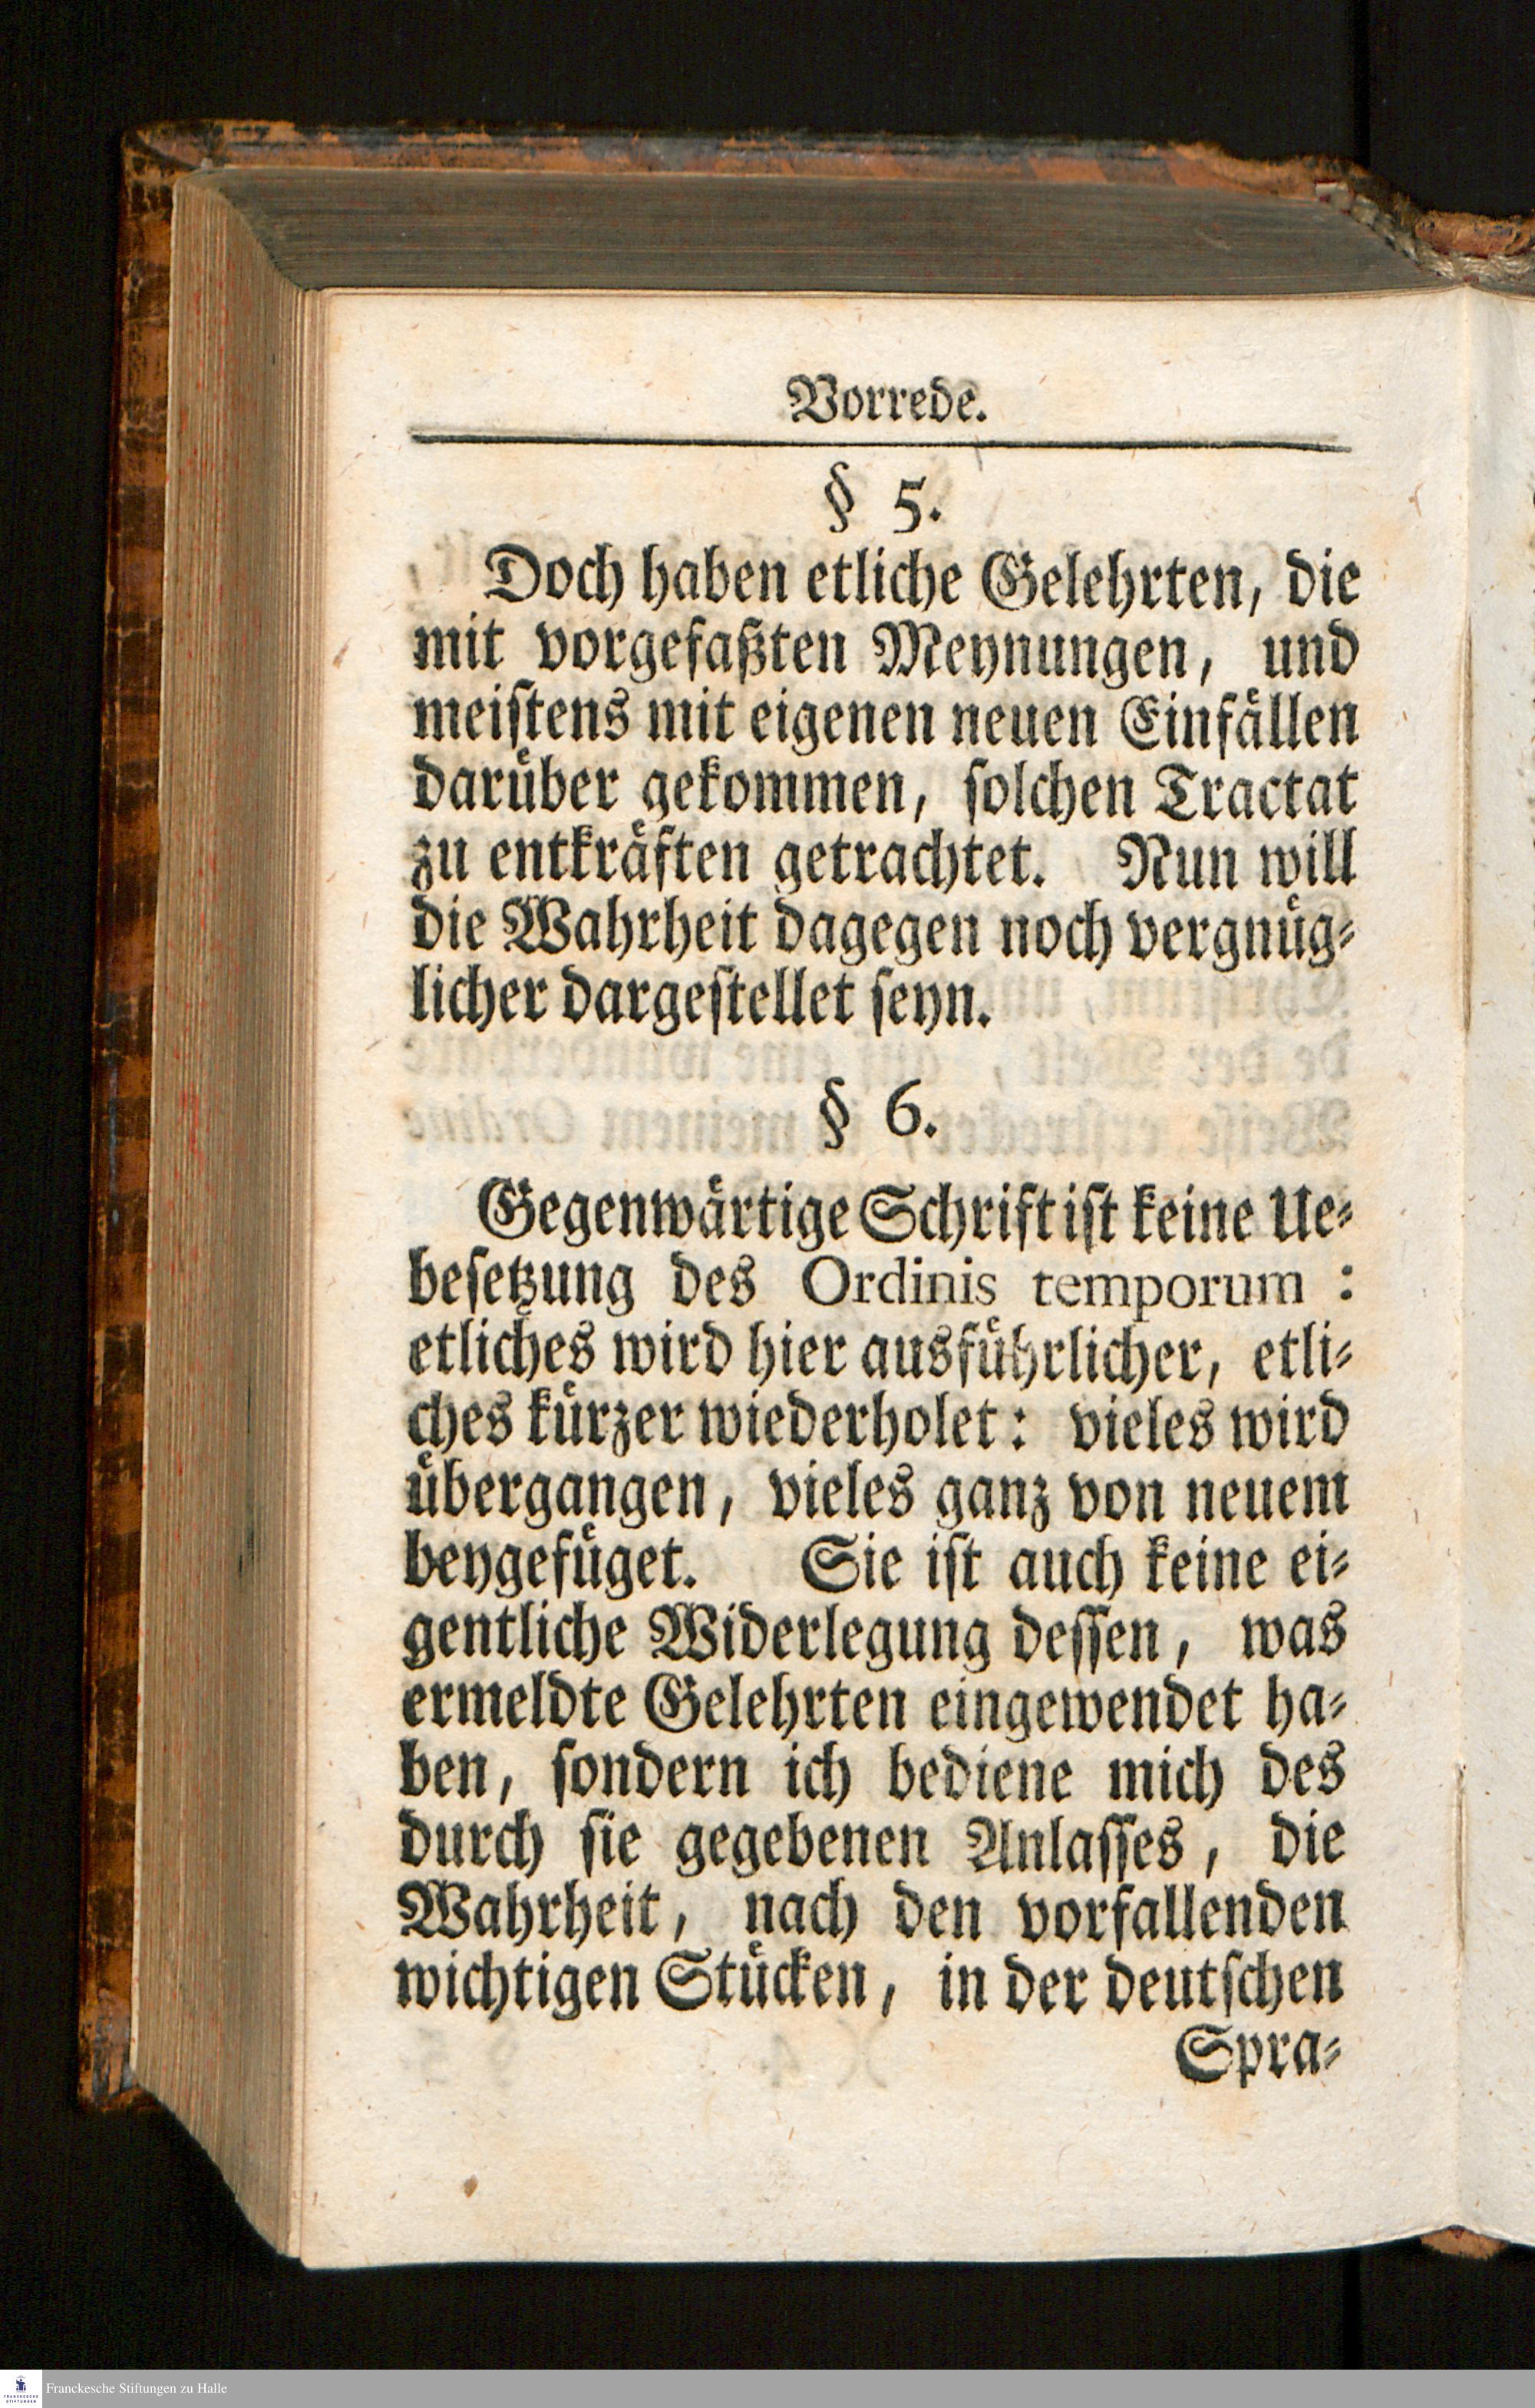 Vorrede.
§ 5.
Doch haben etliche Gelehrten, die
mit vorgefaßten Meynungen, und
meiſtens mit eigenen neuen Einfaͤllen
daruͤber gekommen, ſolchen Tractat
zu entkraͤften getrachtet. Nun will
die Wahrheit dagegen noch vergnuͤg⸗
licher dargeſtellet ſeyn.
§ 6.
Gegenwaͤrtige Schrift iſt keine Ue⸗
beſetzung des Ordinis temporum :
etliches wird hier ausfuͤhrlicher, etli⸗
ches kuͤrzer wiederholet: vieles wird
uͤbergangen, vieles ganz von neuem
beygefuͤget. Sie iſt auch keine ei⸗
gentliche Widerlegung deſſen, was
ermeldte Gelehrten eingewendet ha⸗
ben, ſondern ich bediene mich des
durch ſie gegebenen Anlaſſes, die
Wahrheit, nach den vorfallenden
wichtigen Stuͤcken, in der deutſchen
Spra⸗
Franckesche Stiftungen zu Halle